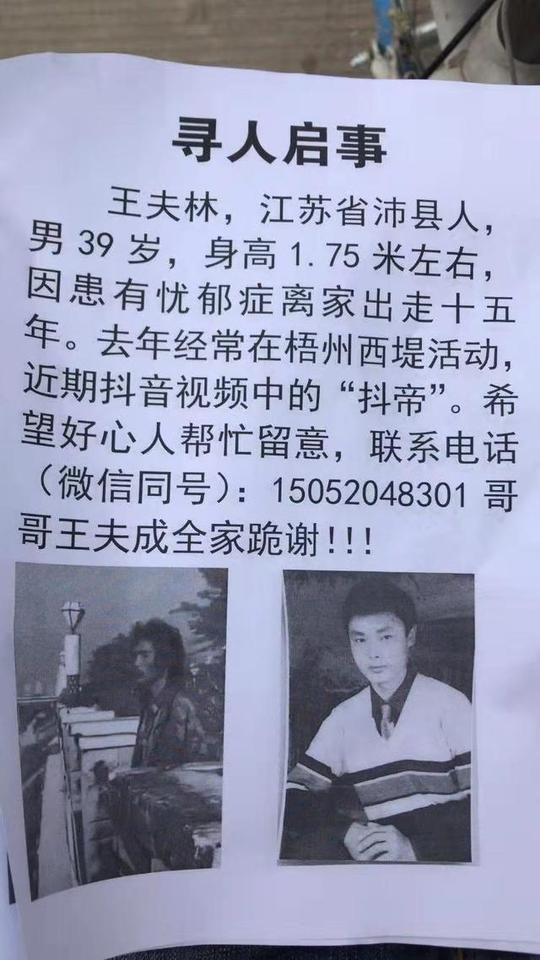 寻人启事
王夫林，江苏省沛县人，
男 39 岁，身高 1.75 米左右，
因患有忧郁症离家出走十五
年。去年经常在梧州西堤活动，
近期抖音视频中的“抖帝”。希
望好心人帮忙留意，联系电话
（微信同号）：15052048301 哥
哥王夫成全家跪谢!!!